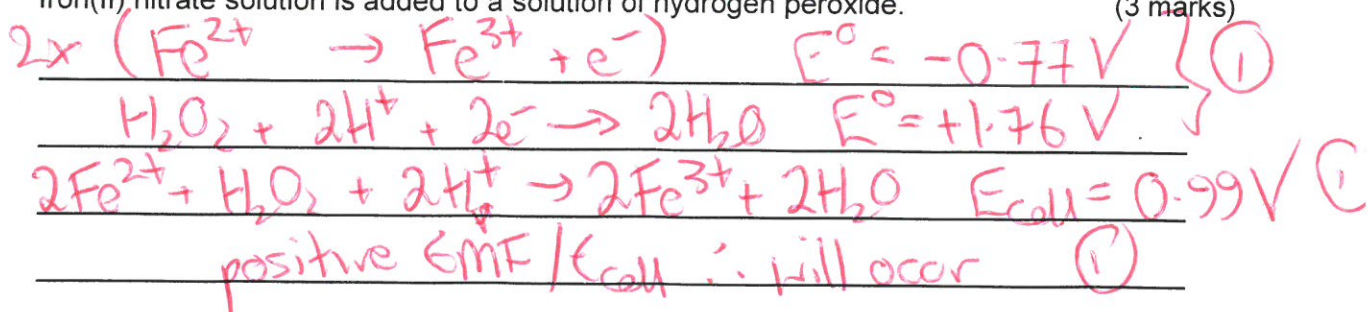 Iron(II) nitrate solution is added to a solution of hydrogen peroxide. (3 marks)
2x (Fe²⁺ → Fe³⁺ + e⁻) E° = -0.77 V } ①
H₂O₂ + 2H⁺ + 2e⁻ → 2H₂O E° = +1.76 V.
2Fe²⁺ + H₂O₂ + 2H⁺ → 2Fe³⁺ + 2H₂O Ecell = 0.99V ①
positive EMF / Ecell ∴ will occor ①